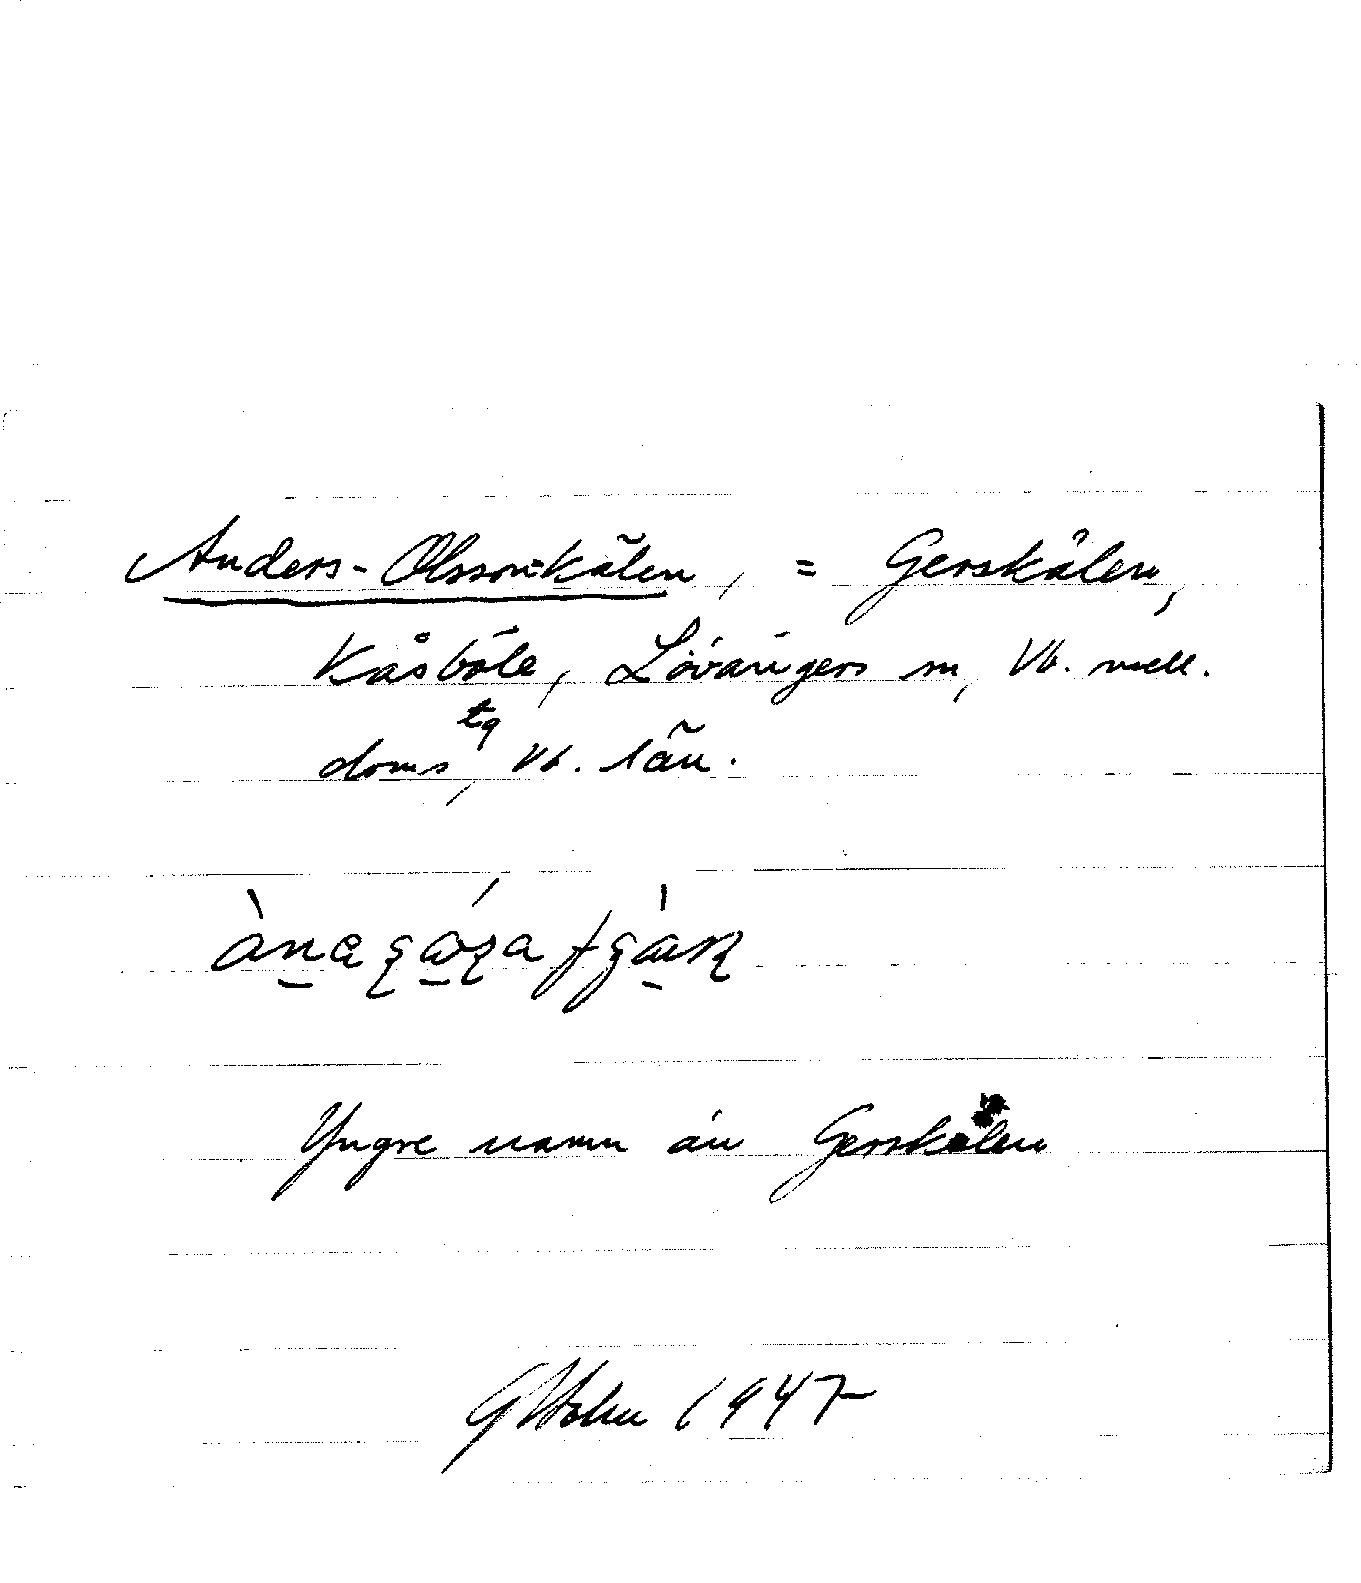 Anders-Olsson-kälen, = Gerskälen,
Kåsböle, Lövångers sn, Vb. mell.
doms tg, Vb. län.
Yngre namn än Gerskälen
1947